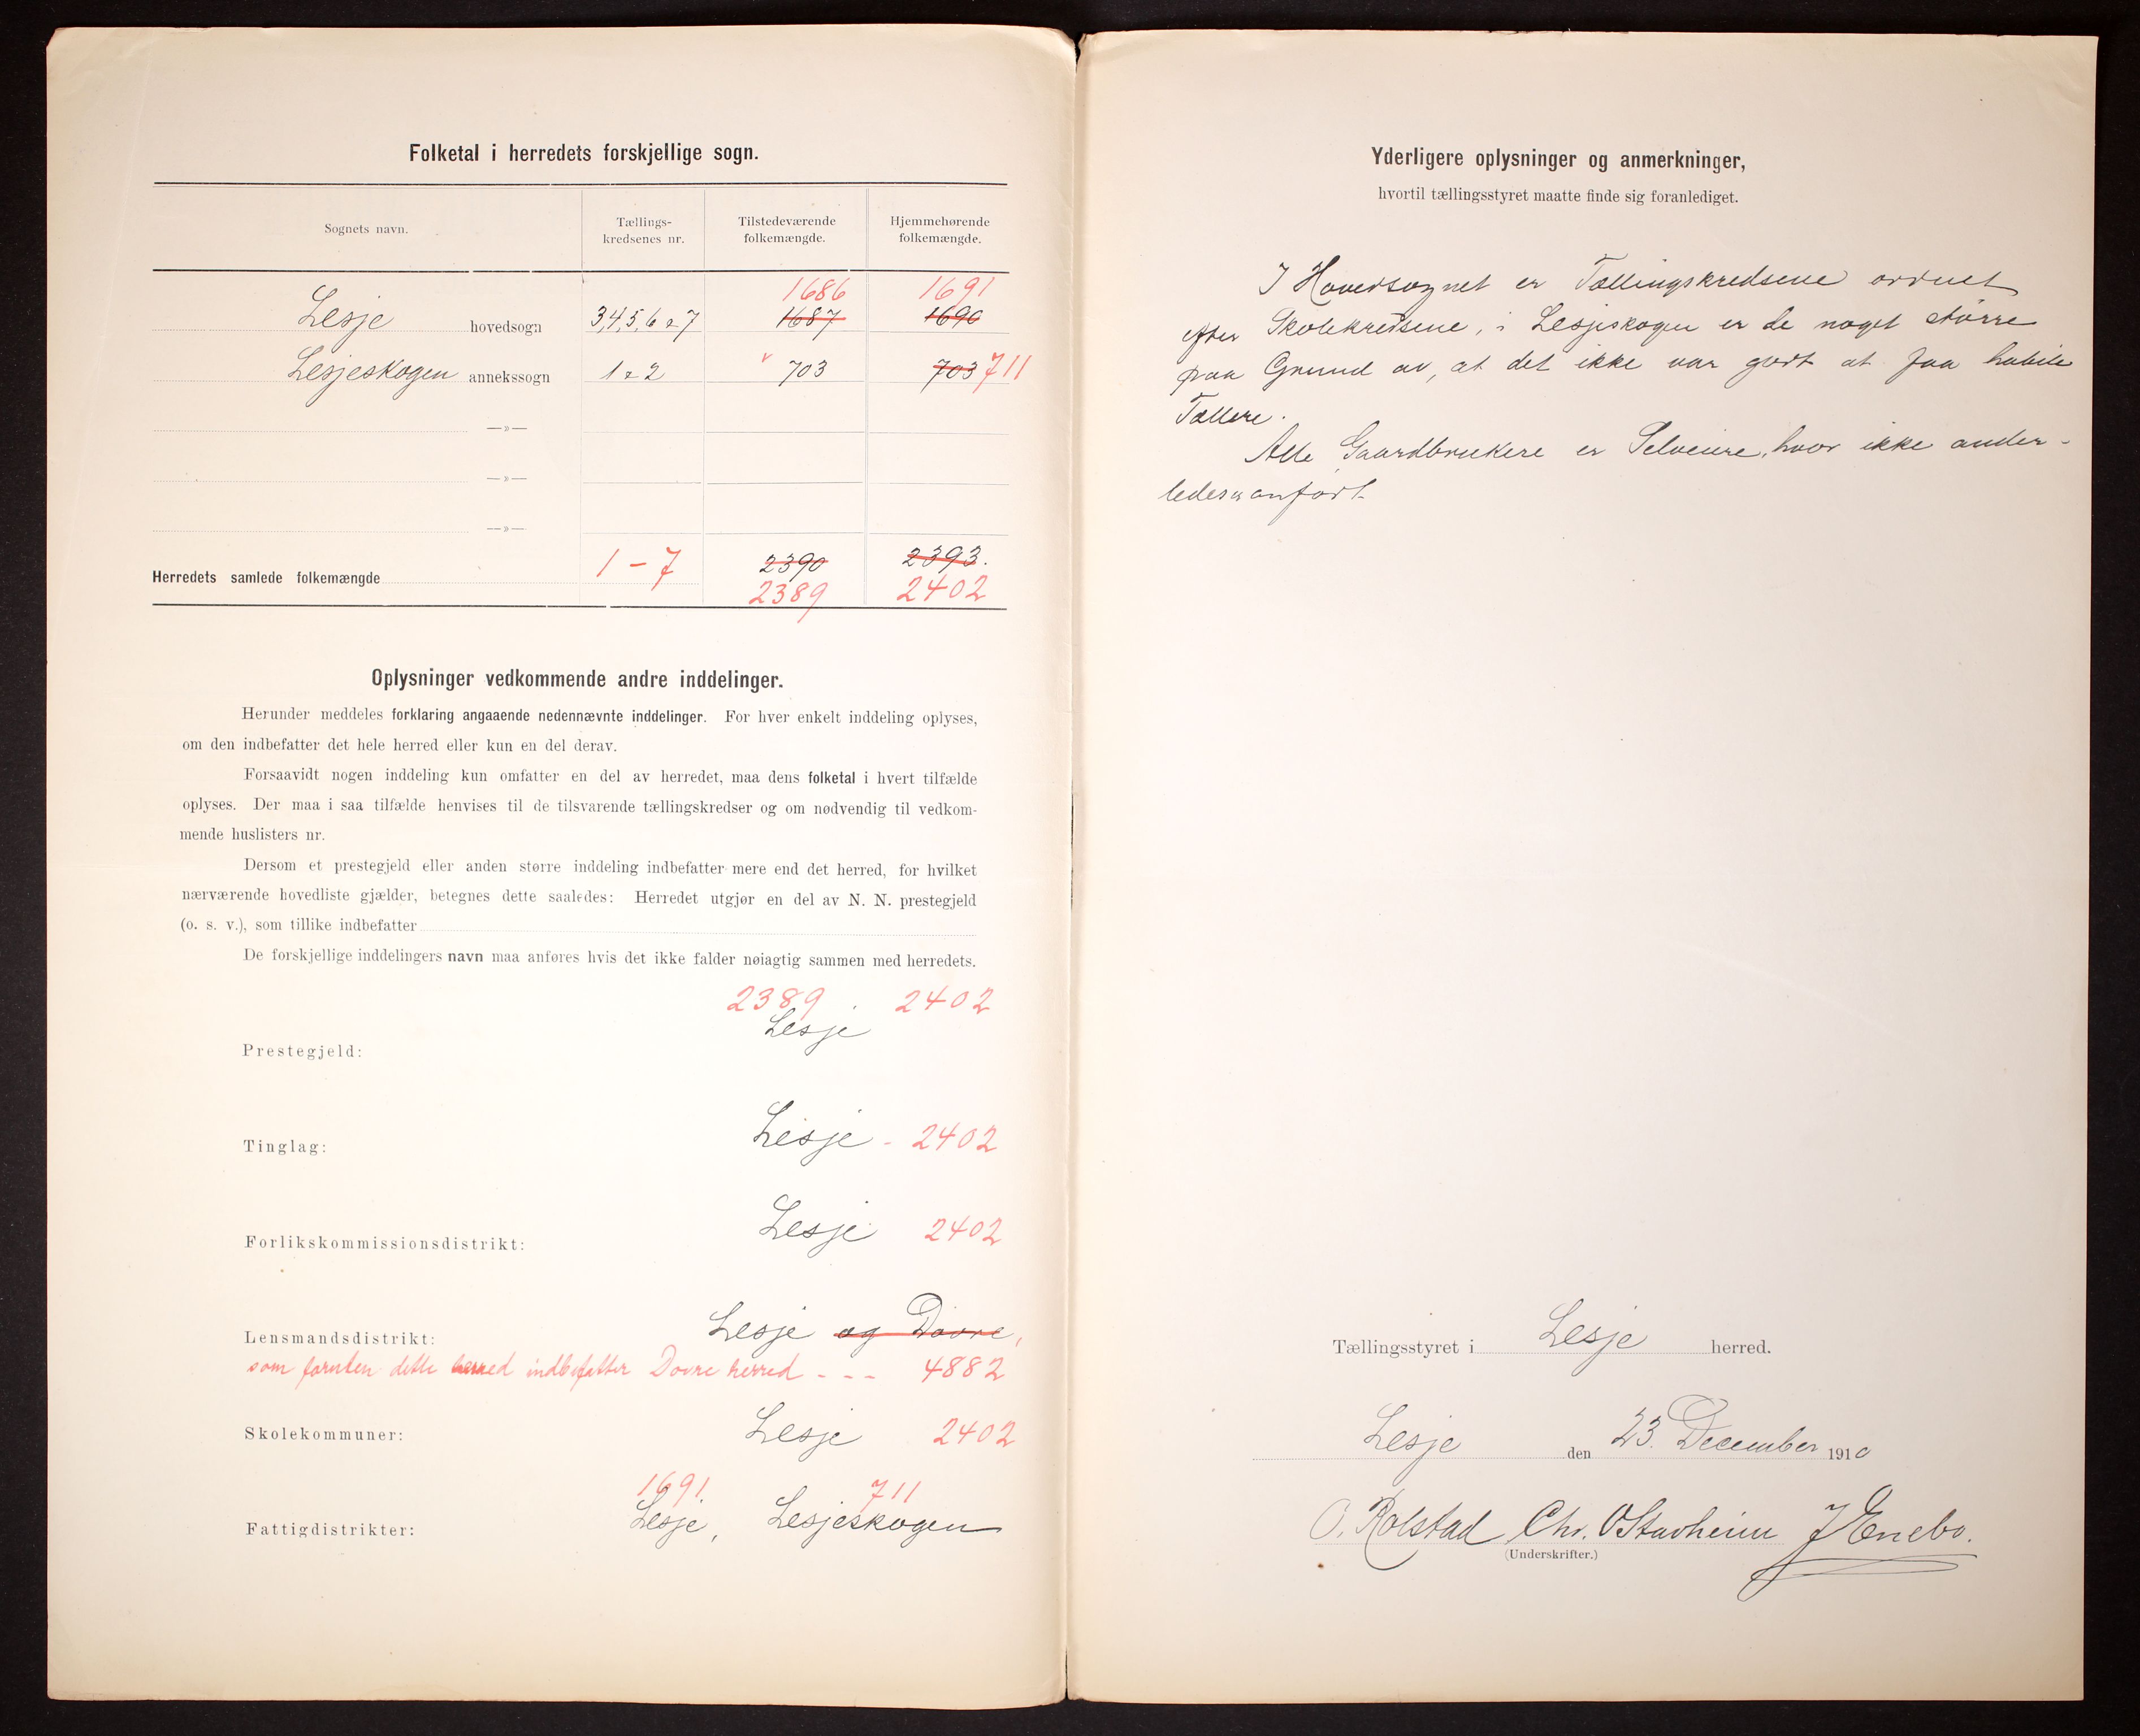 Folketal i herredets forskjellige sogn.
Sognets navn.
Tællings-
kredsenes nr.
Tilstedeværende
folkemængde.
Hjemmehørende
folkemængde.
1686 1691
Lesje hovedsogn 3,4,5,6 & 7 1687 1690
Lesjeskogen annekssogn 1 & 2 v 703 703 711
—»—
—»—
—»—
1 – 7 2390 2393.
Herredets samlede folkemængde
2389 2402
Oplysninger vedkommende andre inddelinger.
Herunder meddeles forklaring angaaende nedennævnte inddelinger. For hver enkelt inddeling oplyses,
om den indbefatter det hele herred eller kun en del derav.
Forsaavidt nogen inddeling kun omfatter en del av herredet, maa dens folketal i hvert tilfælde
oplyses. Der maa i saa tilfælde henvises til de tilsvarende tællingskredser og om nødvendig til vedkom-
mende huslisters nr.
Dersom et prestegjeld eller anden større inddeling indbefatter mere end det herred, for hvilket
nærværende hovedliste gjælder, betegnes dette saaledes: Herredet utgjør en del av N. N. prestegjeld
(o. s. v.), som tillike indbefatter
De forskjellige inddelingers navn maa anføres hvis det ikke falder nøiagtig sammen med herredets.
2389 . 2402
Lesje
Prestegjeld:
Lesje - 2402
Tinglag:
Lesje 2402
Forlikskommissionsdistrikt:
Lesje og Dovre,
Lensmandsdistrikt:
som foruten dette herred indbefatter Dovre herred - - - 4882
Lesje 2402
Skolekommuner:
1691 711
Lesje, Lesjeskogen
Fattigdistrikter:
Yderligere oplysninger og anmerkninger,
hvortil tællingsstyret maatte finde sig foranlediget.
I Hovedsognet er Tællingskredsene ordnet
efter Skolekredsene, i Lesjeskogen er de noget større
paa Grund av, at det ikke var godt at faa habile
Tællere.
Alle Gaardbrukere er Selveiere, hvor ikke ander-
ledes er anført.
Tællingsstyret i Lesje herred.
Lesje den 23. December 1910
O. Rolstad Chr. O Stavheim J Enebo.
(Underskrifter.)